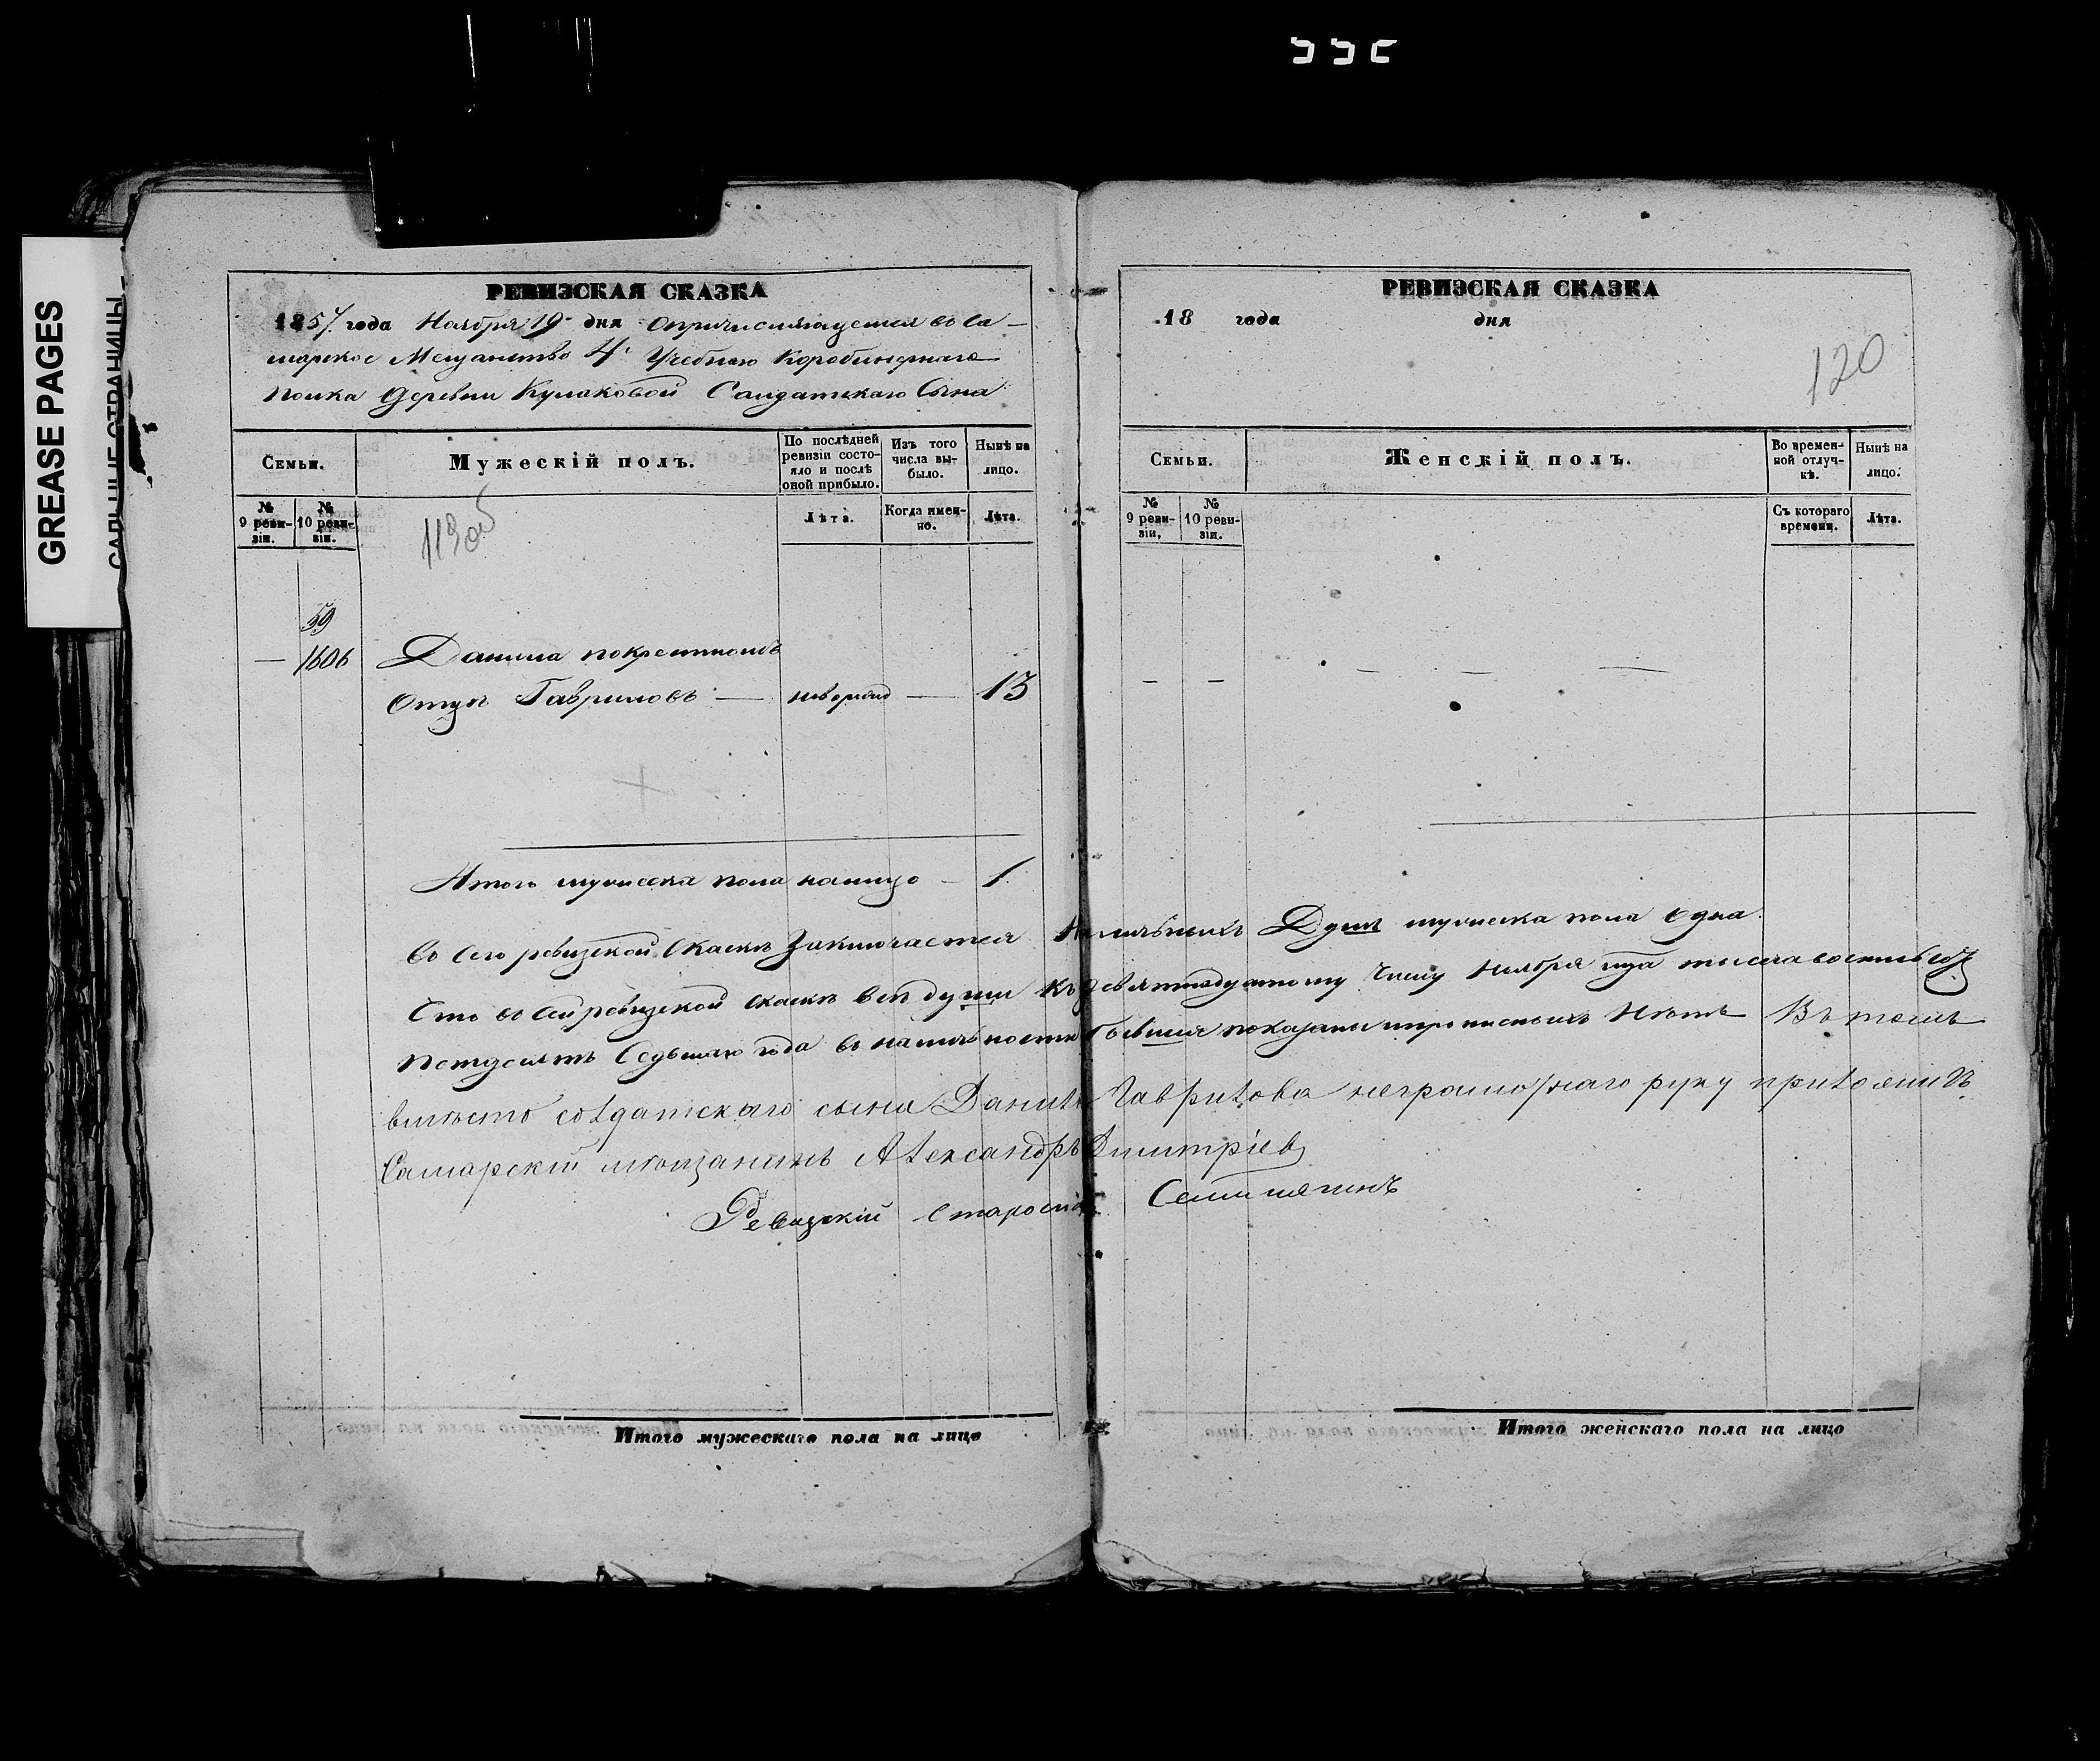 GREASE PAGES
САЛЬНЫЕ СТРАНИЦЫ
РЕВИЗСКАЯ СКАЗКА
1857 года Ноября 19 дня о причисляющемся въ Са-
марское Мещанство 4. Учебнаго Карабинернаго
полка Деревни Кулаковой Салдатскаго Сына
Семьи.
Мужескій полъ.
По послѣдней ревизіи состояло и послѣ оной прибыло.
Изъ того числа выбыло.
Нынѣ на лицо.
№ 9 ревизіи.
№ 10 ревизіи.
Лѣта.
Когда именно.
Лѣта.
119 об
59
— 1606 Данила по крестном
Отцѣ Гавриловъ — — 13
Итого мужеска пола налицо — 1
РЕВИЗСКАЯ СКАЗКА
18 года дня
120
Семьи.
Женскій полъ.
Во временной отлучкѣ.
Нынѣ на лицо.
№ 9 ревизіи,
№ 10 ревизіи.
Съ котораго времени.
Лѣта.
— — — — —
Во сей ревизской скаскѣ заключается Наличныхъ Душъ мужеска пола одна
Что во сей ревизской скаскѣ всѣ души къ девятнадцатому числу Ноября тысяча восемьсот
петдесятъ Седьмаго года в наличности бывшия показаны и прописныхъ Нѣтъ Въ томъ
вмѣсто солдатскаго сына Данилы Гаврилова неграмотнаго руку приложилъ
Самарскій мѣщанинъ Александръ Дмитріев
Ревизскій Староста
Итого мужескаго пола на лицо
Итого женскаго пола на лицо